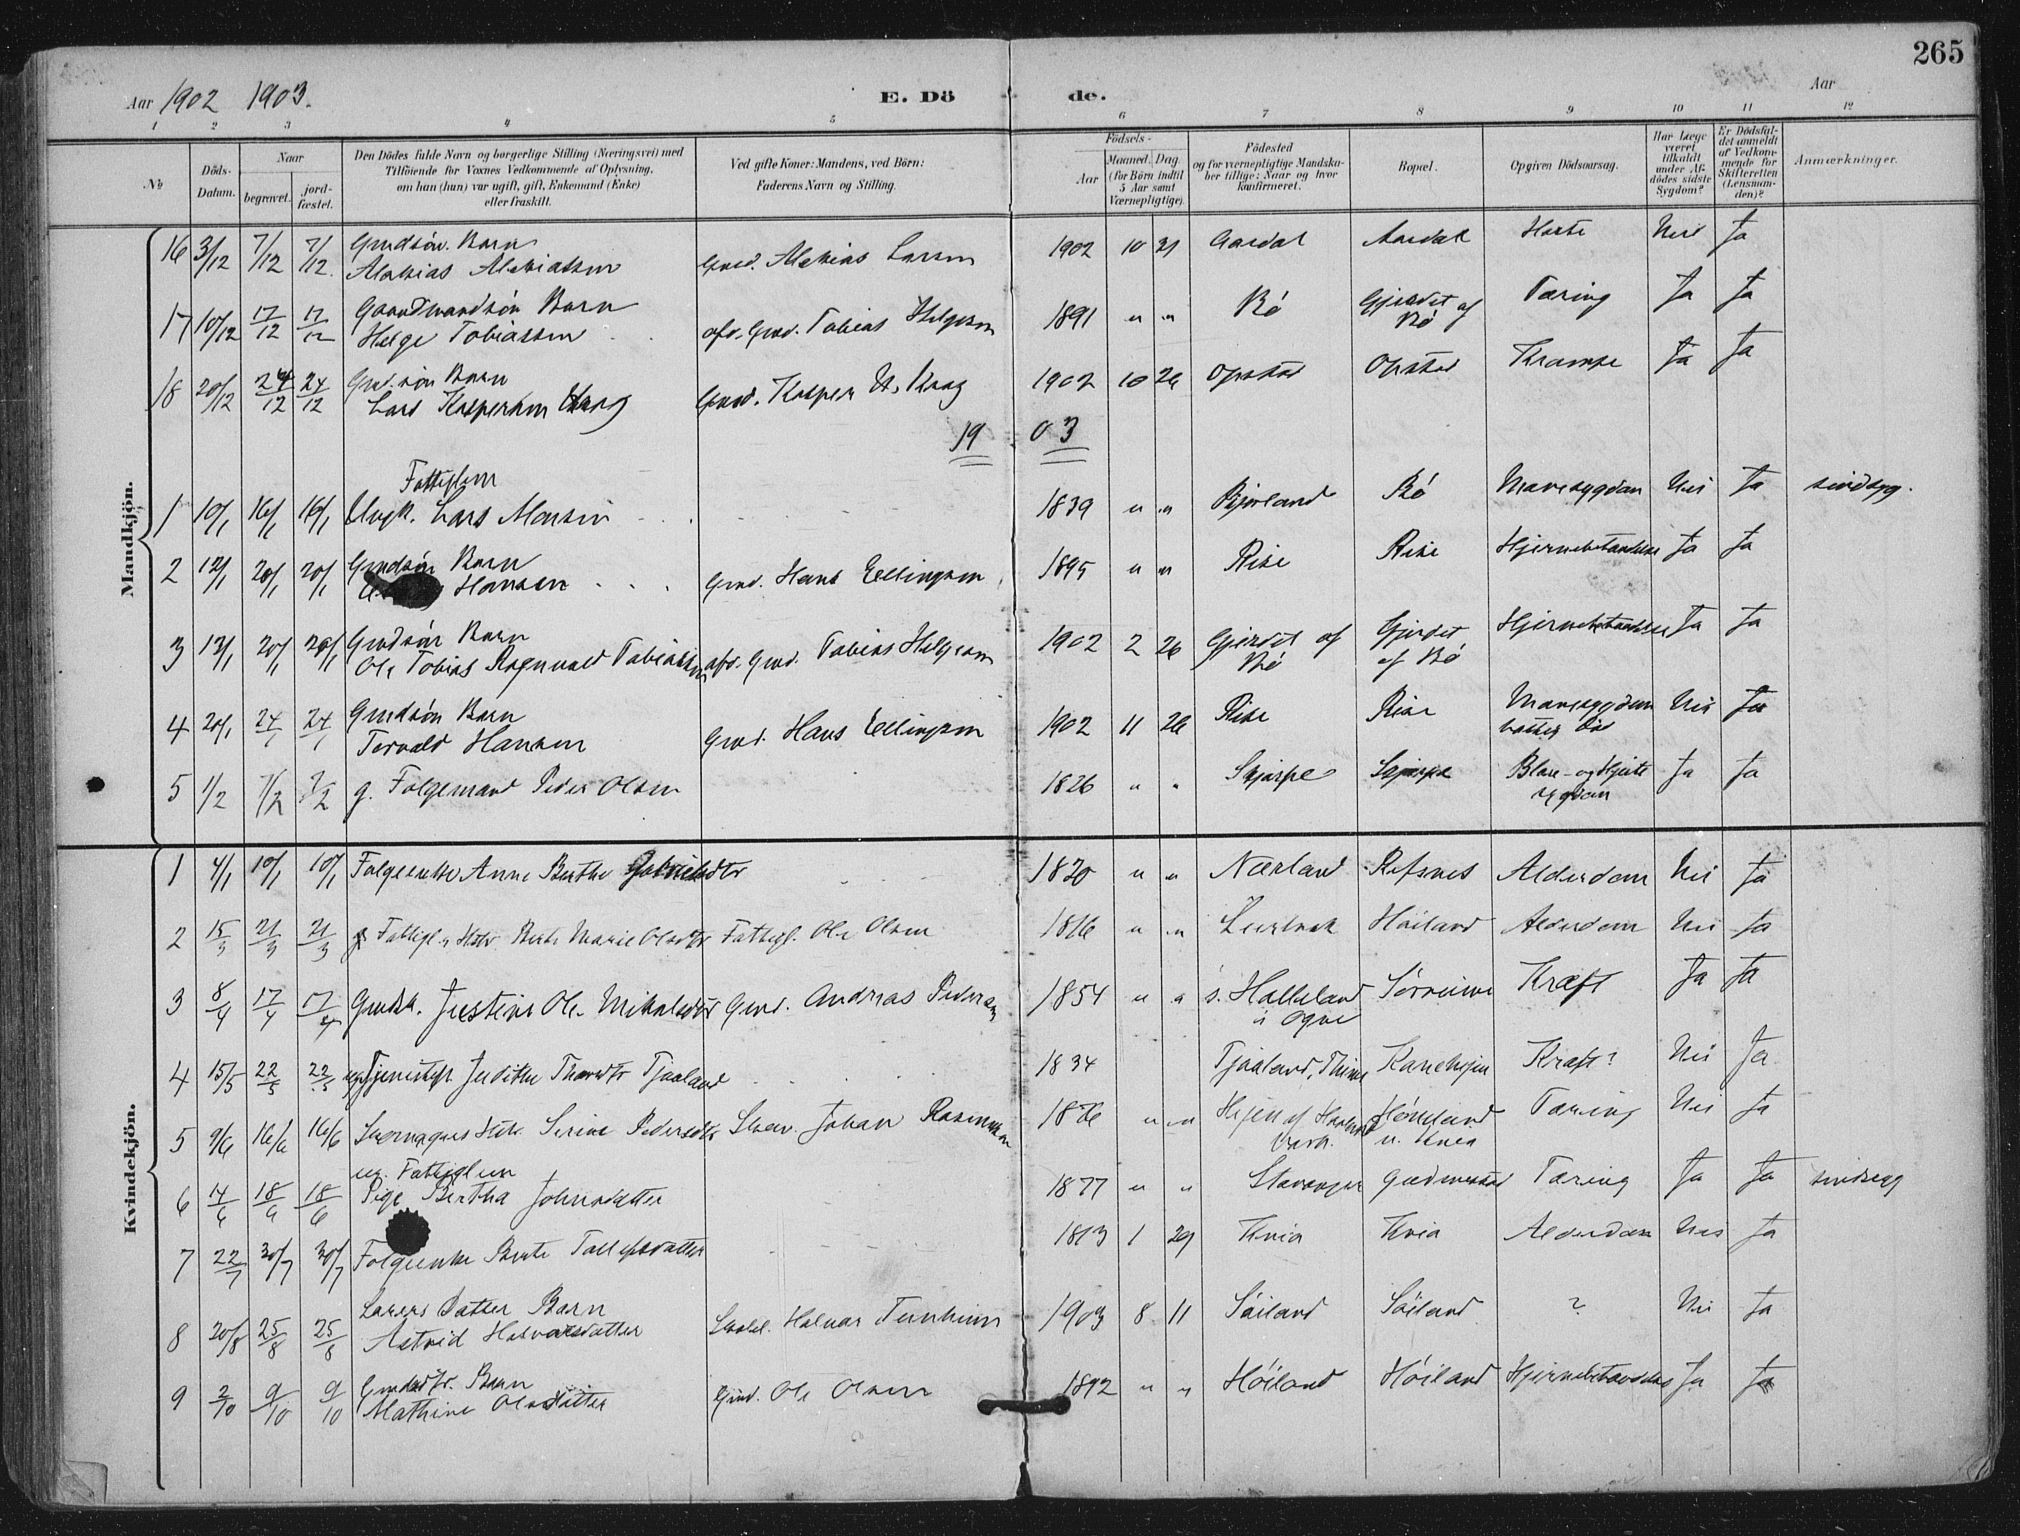 265
Aar 1902 1903.
E. Dö de.
Aar
1 2 3 4 5 6 7 8 9 10 11 12
No
Döds-Datum.
Naar
begravet.
jord-fæstet.
Den Dödes fulde Navn og borgerlige Stilling (Næringsvei) med
Tilföiende for Voxnes Vedkommende af Oplysning,
om han (hun) var ugift, gift, Enkemand (Enke)
eller fraskilt.
Ved gifte Koner: Mandens, ved Börn:
Faderens Navn og Stilling.
Födsels-
Aar
Maaned. Dag.
(for Börn indtil
5 Aar samt
Værnepligtige)
Födested
og for værnepligtige Mandska-
ber tillige: Naar og hvor
konfirmeret.
Bopæl.
Opgiven Dödsaarsag.
Har Læge
været
tilkaldt
under Af-
dödes sidste
Sygdom?
Er Dödsfal-
det anmeldt
af Vedkom-
mende for
Skifteretten
(Lensman-
den)?
Anmærkninger.
Mandkjön.
16 3/12 7/12 7/12 Gmdsön. Barn 1902 10 31 Aardal Hoste Nei Ja
Gmd. Larsen
17 10/12 17/12 17/12 Gaardmandsön Barn
Helge Tobiassen afd. Gmd. Tobias Helgesen 1891 " " Bö Gjerdet af Bö Tæring Ja Ja
18 20/12 24/12 24/12 Gmdsön Barn
Lars Kaspersen Krag Gmd. Kasper Krag 1902 10 Opstad Opstad Krampe Ja Ja
19 03
Fattiglem
1 10/1 16/1 16/1 Ungk. Lars 1839 " " Bjorland Bö Mavesygdom Nei Ja sindsyg.
2 12/1 20/1 20/1 Gmdsön Barn
Hansen Gmd. Hans Ellingsen 1895 " " Rise Rise Hjernebetændelse Ja Ja
3 13/1 20/1 20/1 Gmdsön Barn
Ole Tobias Ragnvald Tobiassen afd. Gmd. Tobias Helgesen 1902 2 26 Gjerdet af Bö Gjerdet af Bö Hjernebetændelse Ja Ja
4 20/1 24/1 24/1 Gmdsön Barn
Torvald Hansen Gmd. Hans Ellingsen 1902 11 26 Rise Rise Mavesygdom Nei Ja
5 1/2 7/2 7/2 g. Folgemand Peder Olsen 1826 " " Skjærpe Skjærpe Blære- og Hjerte
sygdom Ja Ja
Kvindekjön.
1 4/1 10/1 10/1 Folgeenke Anne Berthe Gabrielsdtr 1820 " " Nærland Refsnes Alderdom Nei Ja
2 15/3 21/3 21/3 Fattigl.s Hstr Marie Olsdtr Fattigl. Ole Olsen 1816 " " Höiland Alderdom Nei Ja
3 8/4 17/4 17/4 Gmdsk. Justine Ol. Mikalsdtr Gmd. Andreas Pedersen 1854 " " s. Halleland
i Ogne Sörreime Kræft Ja Ja
4 15/5 22/5 22/5 ug Judithe Tjaaland 1834 Tjaaland, Thime Kanehejen Kræft? Nei Ja
5 9/6 16/6 16/6 Serine Pedersdtr Johan Rasmussen 1876 " " Varh. Tæring Nei Ja
6 14/6 18/6 18/6 ug. Fattiglem
Pige Bertha Johnsdatter 1877 " " Stavanger Gudmestad Tæring Ja Ja sindssyg
7 22/7 30/7 30/7 Folgeenke Berte Tollefsdatter 1813 1 29 Kvia Kvia Alderdom Nei Ja
8 20/8 25/8 25/8 Lærers Datter Barn
Astrid Halvorsdatter Skolel. Halvor Tunheim 1903 8 11 Söiland Söiland ? Nei Ja
9 2/10 9/10 9/10 Gmdsdtr. Barn
Mathine Olsdatter Gmd. Ole Olsen 1892 " " Höiland Höiland Hjernebetændelse Ja Ja